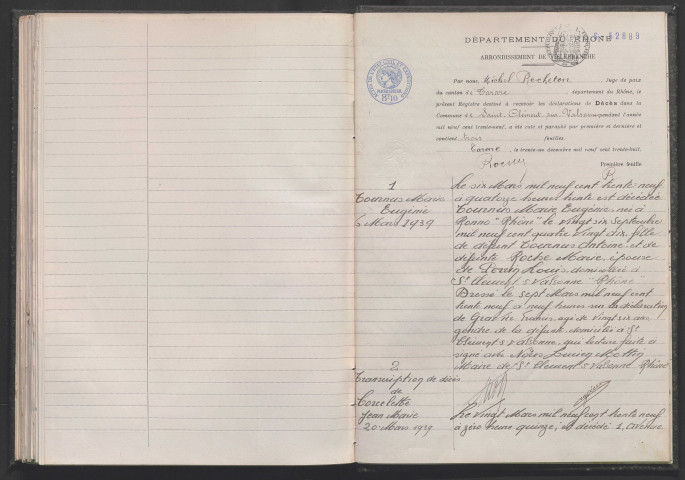 DÉPARTEMENT DU RHÔNE
ARRONDISSEMENT DE VILLEFRANCHE
Par nous, Michel Rocheton, Juge de paix
du canton de Tarare, département du Rhône, le
présent Registre destiné à recevoir les déclarations de Décès dans la
Commune de Saint-Clément sur Valsonne pendant l'année
mil neuf cent trente-neuf, a été coté et paraphé par première et dernière et
contient trois feuilles.
Tarare, le trente-un décembre mil neuf cent trente-huit.
Première feuille
1
Tournus Marie
Eugénie
6 Mars 1939
Le six Mars mil neuf cent trente neuf
à quatorze heures trente est décédée
Tournus Marie Eugénie, née à
Ronno "Rhône" le vingt six Septembre
mil neuf cent quatre vingt dix, fille
de défunt Tournus Antoine, et de
défunte Roche Marie, épouse
de Louis, domiciliée à
St Clément s Valsonne "Rhône"
Dressé le sept Mars mil neuf cent
trente neuf à neuf heures sur la déclaration
de Francis, agé de vingt six ans
gendre de la défunte domicilié à St
Clément s Valsonne, qui lecture faite a
signé avec Nous
Maire de St Clément s Valsonne Rhône
2
Transcription de décès
de
Jean Marie
20 Mars 1939
Le vingt Mars mil neuf cent trente neuf
à zéro heure quinze, est décédé 1, avenue